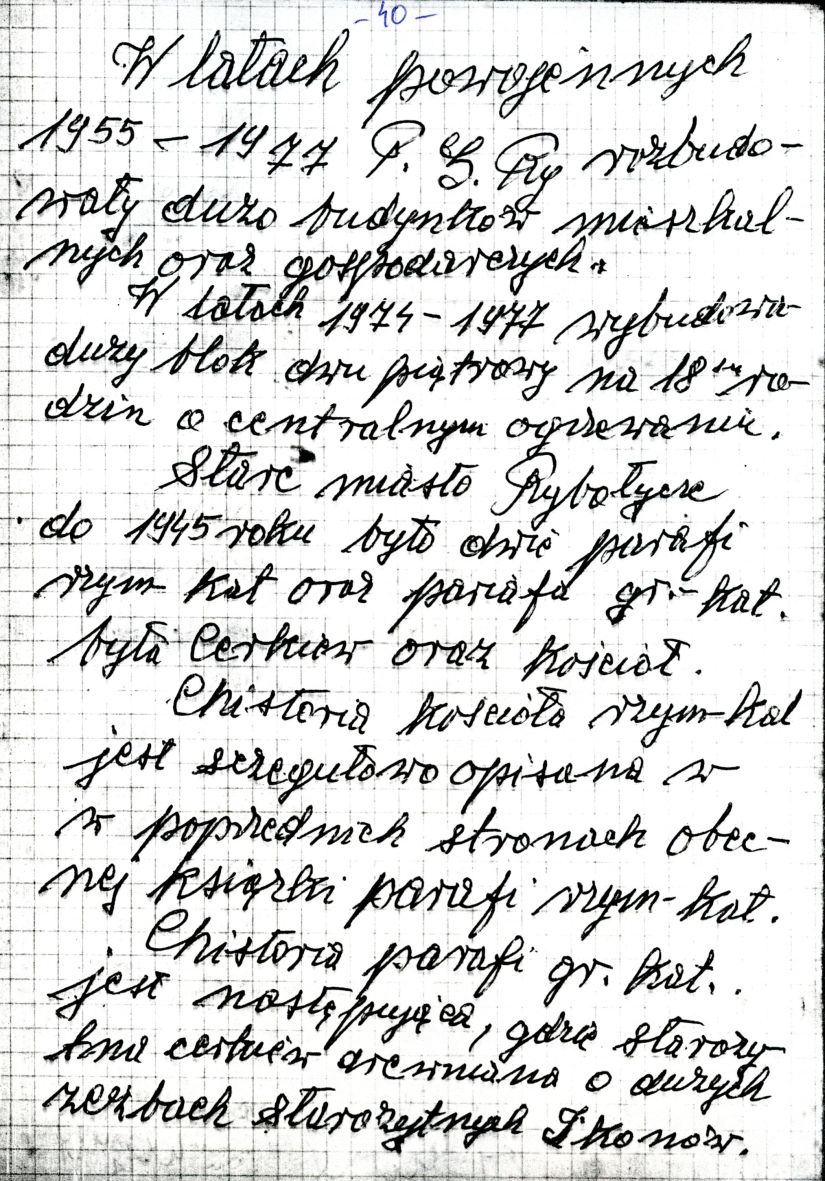 - 40 -
W latach powojennych
1955 - 1977 P. G. Ry rozbudo-
wały dużo budynków mieszkal-
nych oraz gospodarczych.
W latach 1974 - 1977 wybudowa
duży blok dwu piętrowy na 18 ro-
dzin o centralnym ogrzewaniu.
Stare miasto Rybotycze
do 1945 roku było dwie parafi
rzym kat oraz parafa gr.- kat.
była Cerkiew oraz Kościoł.
Chistoria kościoła rzym-kat
jest szregułowo opisana w
w poprzednich stronach obec-
nej ksiązki parafi rzym-kat.
Chistoria parafi gr. kat.
jest następująca, gdzie starozy
tna cerkiew drewniana o dużych
rzezbach starożytnych Ikonów.